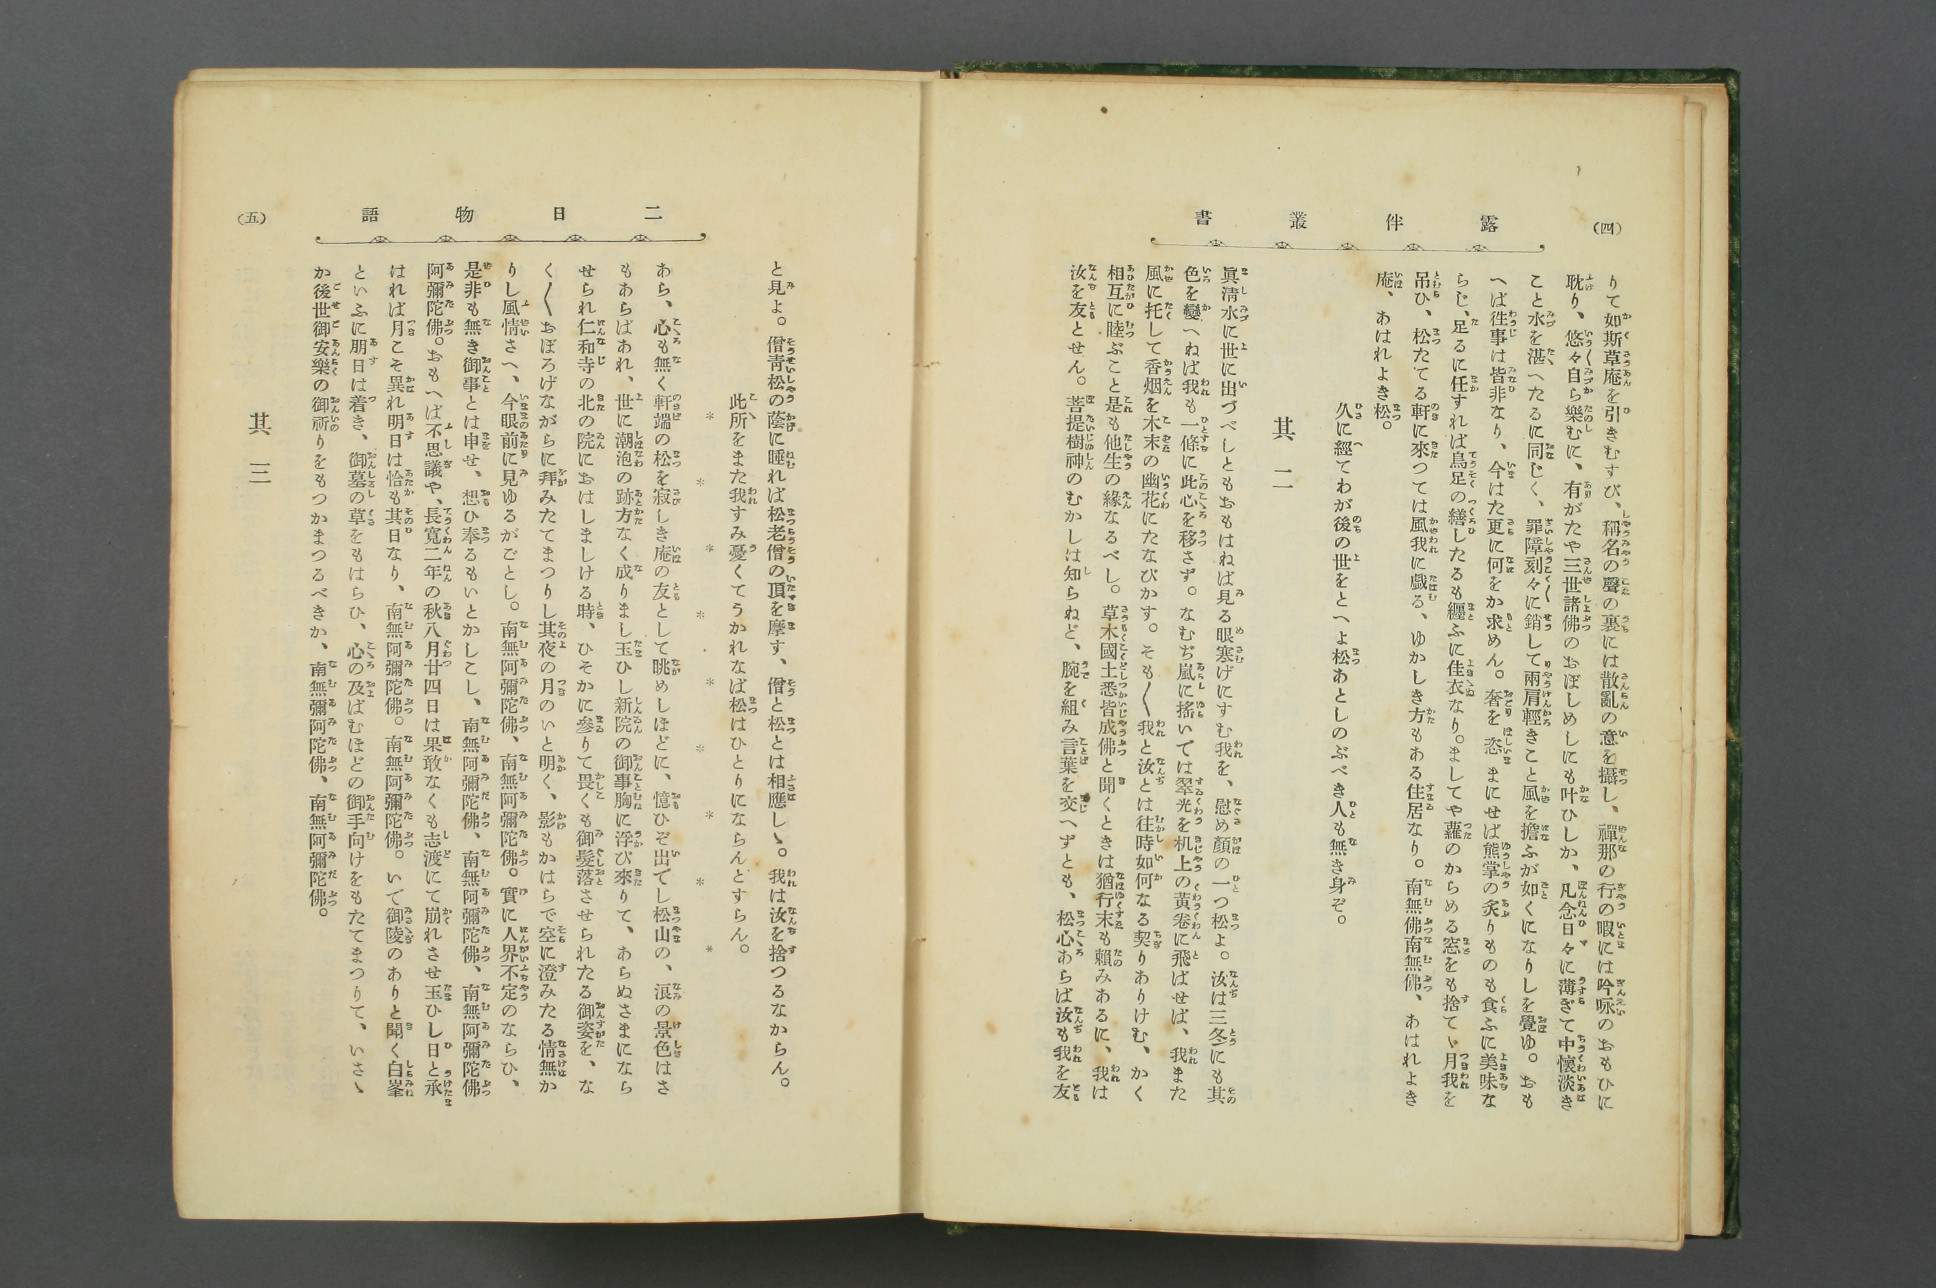 (四)
露伴叢書
りて如斯草庵を引きむすび、稱名の聲の裏には散亂の意を攝し、禪那の行の暇には吟咏のおもひに
耽り、悠々自ら樂むに、有がたや三世諸佛のおぼしめしにも叶ひしか、凡念日々に薄ぎて中懷淡き
こと水を湛へたるに同じく、罪障刻々に銷して兩肩輕きこと風を擔ふが如くになりしを覺ゆ。おも
へば徃事は皆非なり、今はた更に何をか求めん。奢を恣まにせば熊掌の炙りものも食ふに美味な
らじ、足るに任すれば鳥足の繕したるも纒ふに佳衣なり。ましてや蘿のからめる窓をも捨てゝ月我を
吊ひ、松たてる軒に來つては風我に戯る、ゆかしき方もある住居なり。南無佛南無佛、あはれよき
庵、あはれよき松。
久に經てわが後の世をとへよ松あとしのぶべき人も無き身ぞ。
其二
眞淸水に世に出づべしともおもはねば見る眼寒げにすむ我を、慰め顏の一つ松よ。汝は三冬にも其
色を變へねば我も一條に此心を移さず。なむぢ嵐に搖いでは翠光を机上の黄卷に飛ばせば、我また
風に托して香烟を木末の幽花にたなびかす。そも〳〵我と汝とは徃時如何なる契りありけむ、かく
相互に睦ぶこと是も他生の緣なるべし。草木國土悉皆成佛と聞くときは猶行末も賴みあるに、我は
汝を友とせん。菩提樹神のむかしは知らねど、腕を組み言葉を交へずとも、松心あらば汝も我を友
二日物語
(五)
と見よ。僧靑松の蔭に睡れば松老僧の頂を摩す、僧と松とは相應しゝ。我は汝を捨つるなからん。
此所をまた我すみ憂くてうかれなば松はひとりにならんとすらん。
* * * * * * * * *
あら、心も無く軒端の松を寂しき庵の友として眺めしほどに、憶ひぞ出でし松山の、浪の景色はさ
もあらばあれ、世に潮泡の跡方なく成りまし玉ひし新院の御事胸に浮び來りて、あらぬさまになら
せられ仁和寺の北の院におはしましける時、ひそかに參りて畏くも御髮落させられたる御姿を、な
く〳〵おぼろげながらに拜みたてまつりし其夜の月のいと明く、影もかはらで空に澄みたる情無か
りし風情さへ、今眼前に見ゆるがごとし。南無阿彌陀佛、南無阿彌陀佛。實に人界不定のならひ、
是非も無き御事とは申せ、想ひ奉るもいとかしこし、南無阿彌陀佛、南無阿彌陀佛、南無阿彌陀佛
阿彌陀佛。おもへば不思議や、長寬二年の秋八月廿四日は果敢なくも志渡にて崩れさせ玉ひし日と承
はれば月こそ異れ明日は恰も其日なり、南無阿彌陀佛。南無阿彌陀佛。いで御陵のありと聞く白峯
といふに明日は着き、御墓の草をもはらひ、心の及ばむほどの御手向けをもたてまつりて、いさゝ
か後世御安樂の御祈りをもつかまつるべきか、南無彌阿陀佛、南無阿彌陀佛。
其三